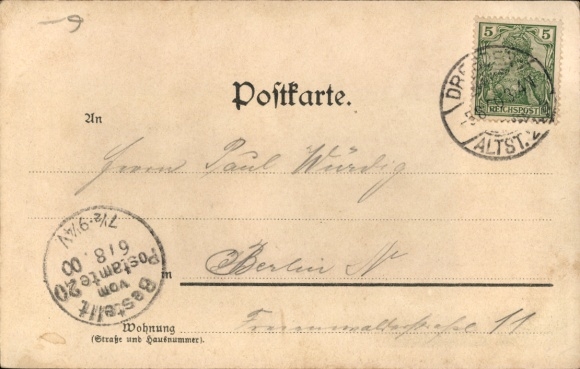 5 5
REICHSPOST
DRESDEN
ALTST.
Postkarte.
An
Herrn Paul Würdig
in Berlin N
Wohnung
(Straße und Hausnummer).
Freienwalderstraße 11
Bestellt
vom
Postamte 20
6/8.00
7½-9¼V